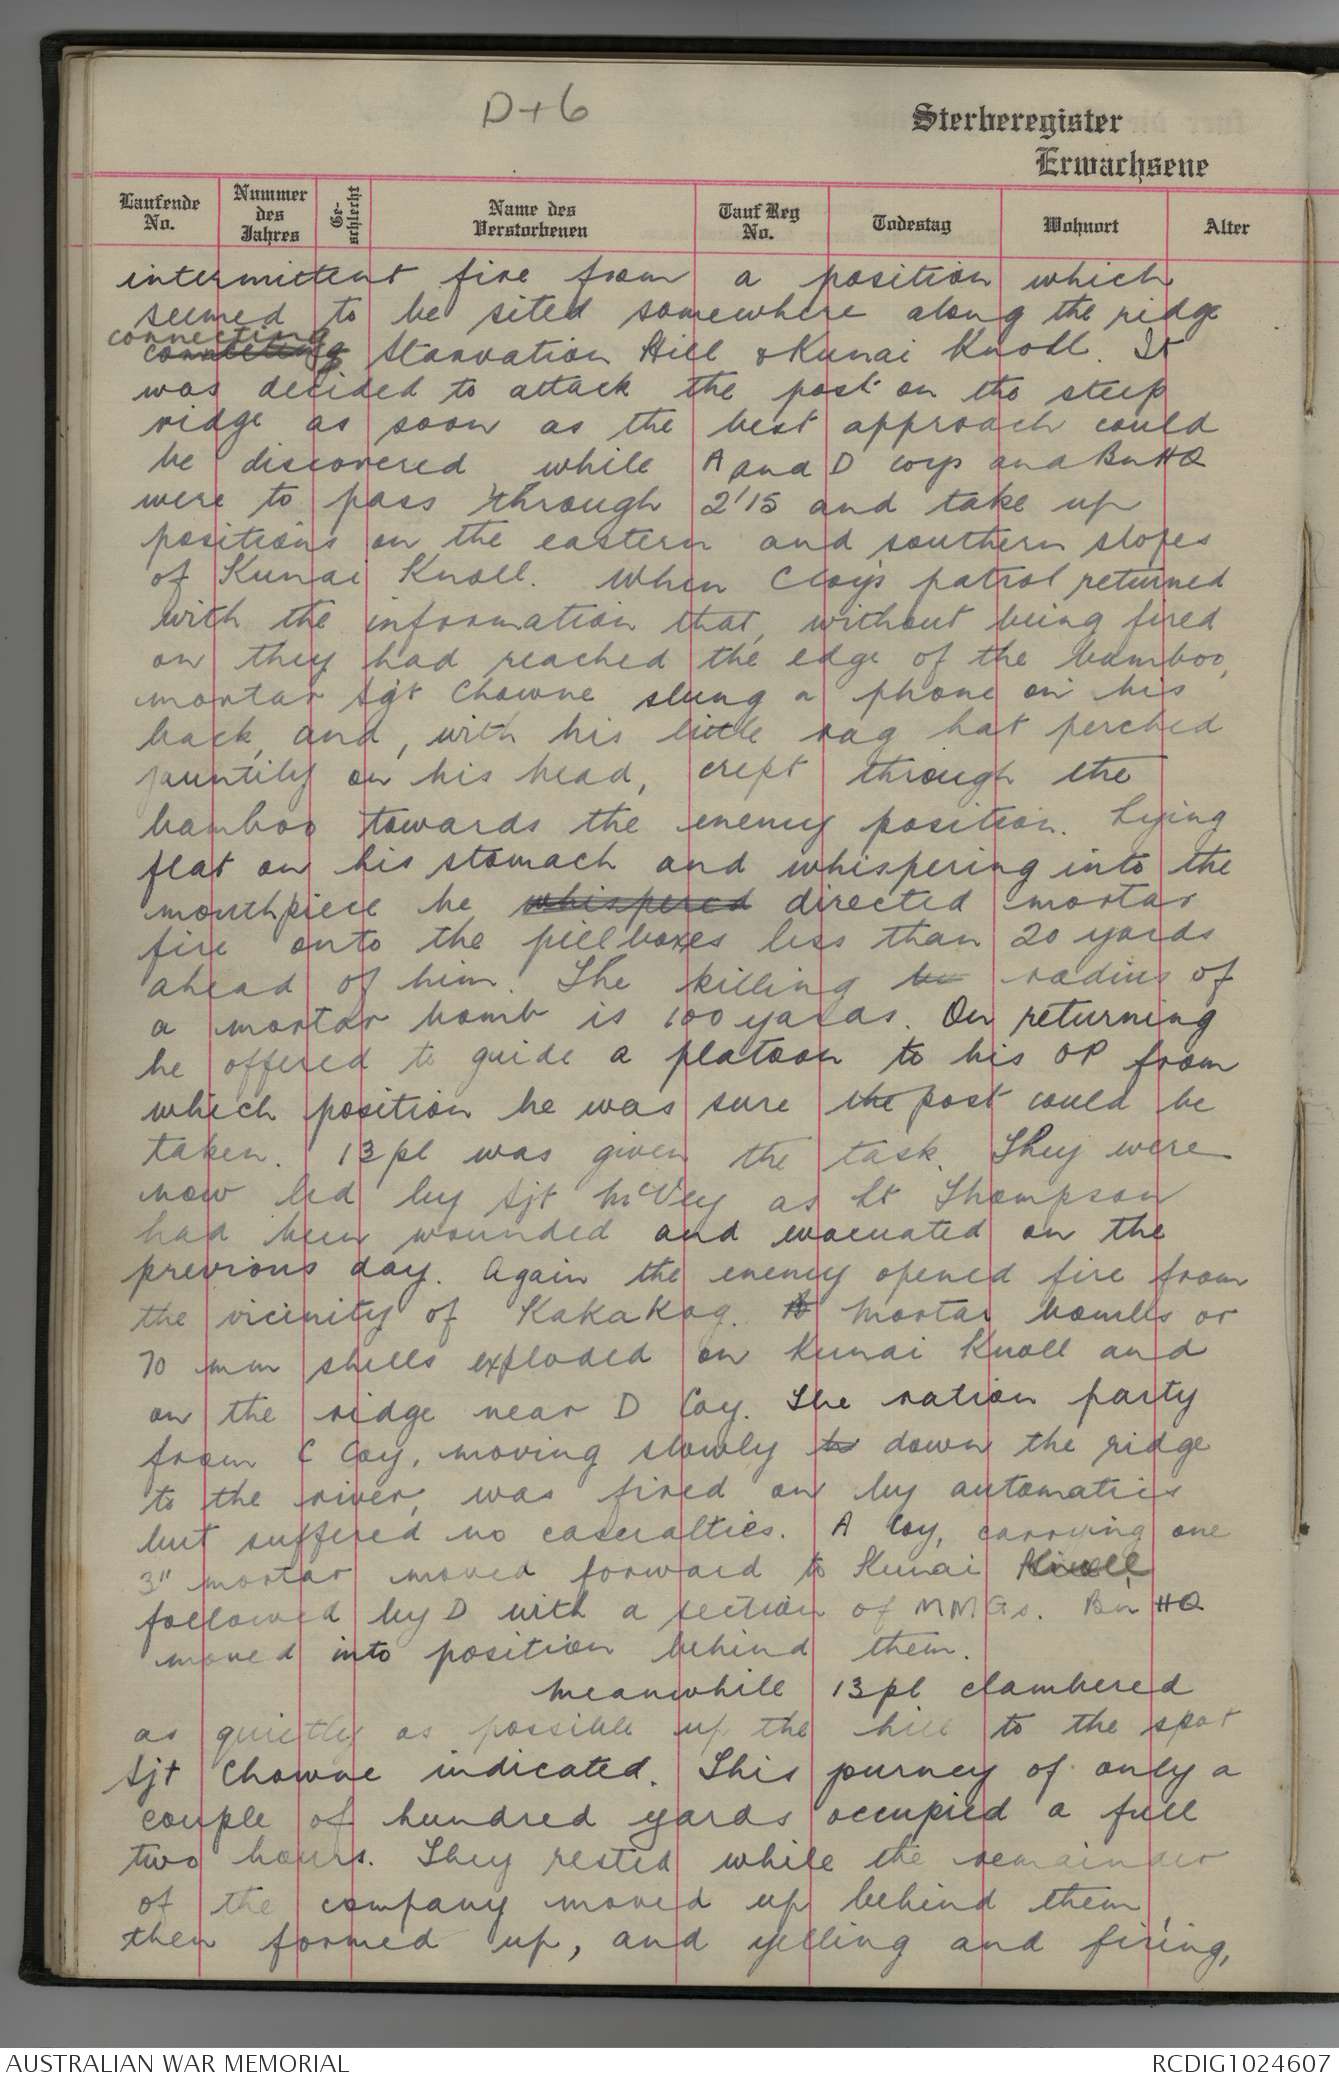 D+6
Sterberegister
Erwachsene
Laufende No.
Nummer des Jahres
Ge-schlecht
Name des Verstorbenen
Tauf Reg No.
Todestag
Wohnort
Alter
intermittent fire from a position which
seemed to be sited somewhere along the ridge
connecting
connecting Starvation Hill & Kunai Knoll. It
was decided to attack the post on the steep
ridge as soon as the best approach could
be discovered while A and D coys and Bn HQ
were to pass through 2'15 and take up
positions on the eastern and southern slopes
of Kunai Knoll. When C Coy's patrol returned
with the information that, without being fired
on they had reached the edge of the bamboo,
mortar Sgt Chowne slung a phone on his
back, and, with his little rag hat perched
jauntily on his head, crept through the
bamboo towards the enemy position. Lying
flat on his stomach and whispering into the
mouthpiece he whispered directed mortar
fire onto the pillboxes less than 20 yards
ahead of him. The killing radius of
a mortar bomb is 100 yards. On returning
he offered to guide a platoon to his OP from
which position he was sure the post could be
taken. 13 pl was given the task. They were
now led by Sjt McVey as Lt Thompson
had been wounded and evacuated on the
previous day. Again the enemy opened fire from
the vicinity of Kakakog. Mortar bombs or
70 mm shells exploded on Kunai Knoll and
on the ridge near D Coy. The ration party
from C Coy, moving slowly to down the ridge
to the river, was fired on by automatics
but suffered no casualties. A Coy, carrying one
3" mortar moved forward to Kunai Knoll
followed by D with a section of MMGs. Bn HQ
moved into position behind them.
Meanwhile 13 pl clambered
as quietly as possible up the hill to the spot
Sjt Chowne indicated. This purney of only a
couple of hundred yards occupied a full
two hours. They rested while the remainder
of the company moved up behind them,
then formed up, and yelling and firing,
AUSTRALIAN WAR MEMORIAL
RCDIG1024607